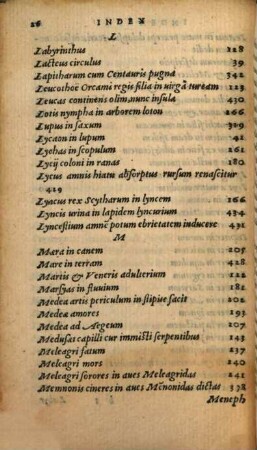 26 INDEX
L
Labyrinthus 228
Lacteus circulus 39
Lapitharum cum Centauris pugna 342
Leucothoë Orcami regis filia in uirgã tuream 123
Leucas continens olim, nunc insula 430
Lotis nympha in arborem loton 266
Lupus in saxum 319
Lycaon in lupum 42
Lychas in scopulum 261
Lycij coloni in ranas 180
Lycus amnis hiatu absorptus rursum renascitur
429
Lyncus rex Scytharum in lyncem 166
Lyncis urina in lapidem lyncurium 434
Lyncestium amnẽ potum ebrietatem inducere 431
M
Mæra in canem 205
Mare in terram 428
Martis & Veneris adulterium 122
Marsyas in fluuium 181
Medea artis periculum in stipite facit 202
Medeæ amores 193
Medea ad Aegeum 207
Medusæ capilli cur immisti serpentibus 143
Meleagri fatum 237
Meleagri mors 240
Meleagri sorores in aues Meleagridas 241
Memnonis cineres in aues Mẽnonidas dictas 378
Meneph